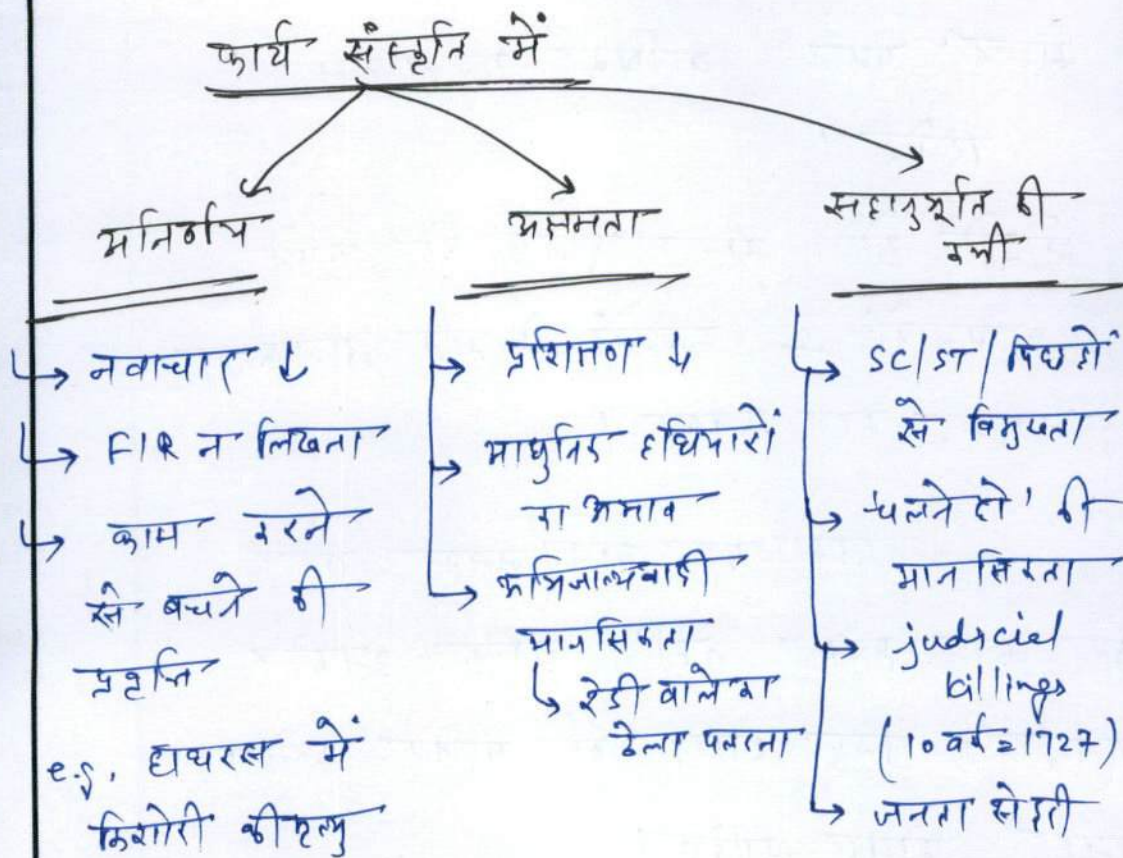 कार्य संस्कृति में
अनिर्णय
नवाचार ↓
FIR न लिखना
काम करने
से बचने की
प्रवृत्ति
e.g. हाथरस में
किशोरी की मृत्यु
अक्षमता
प्रशिक्षण ↓
आधुनिक हथियारों
का अभाव
अभिजात्यवादी
मानसिकता
रेडी वाले का
ठेला पलटना
सहानुभूति की
कमी
SC/ST/पिछड़ों
से विमुखता
'चलने दो' की
मानसिकता
judicial
killings
(10 वर्ष = 1727)
जनता से दूरी